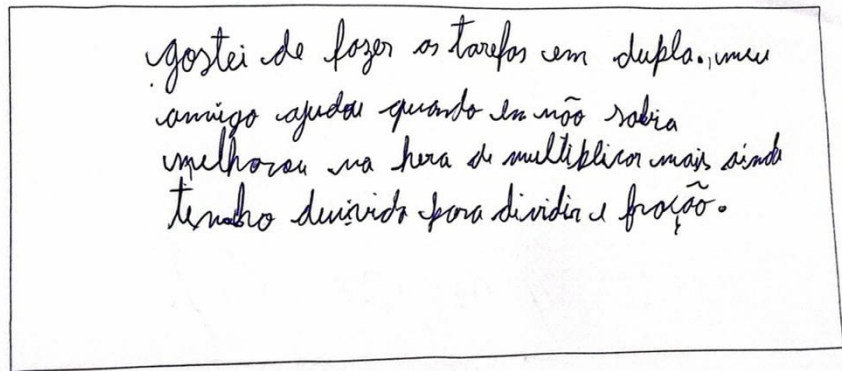 gostei de fazer as tarefas em dupla. meu
amigo ajudou quando eu não sabia
melhorou na hora de multiplicar mais ainda
tenho duvida para dividir e fração.